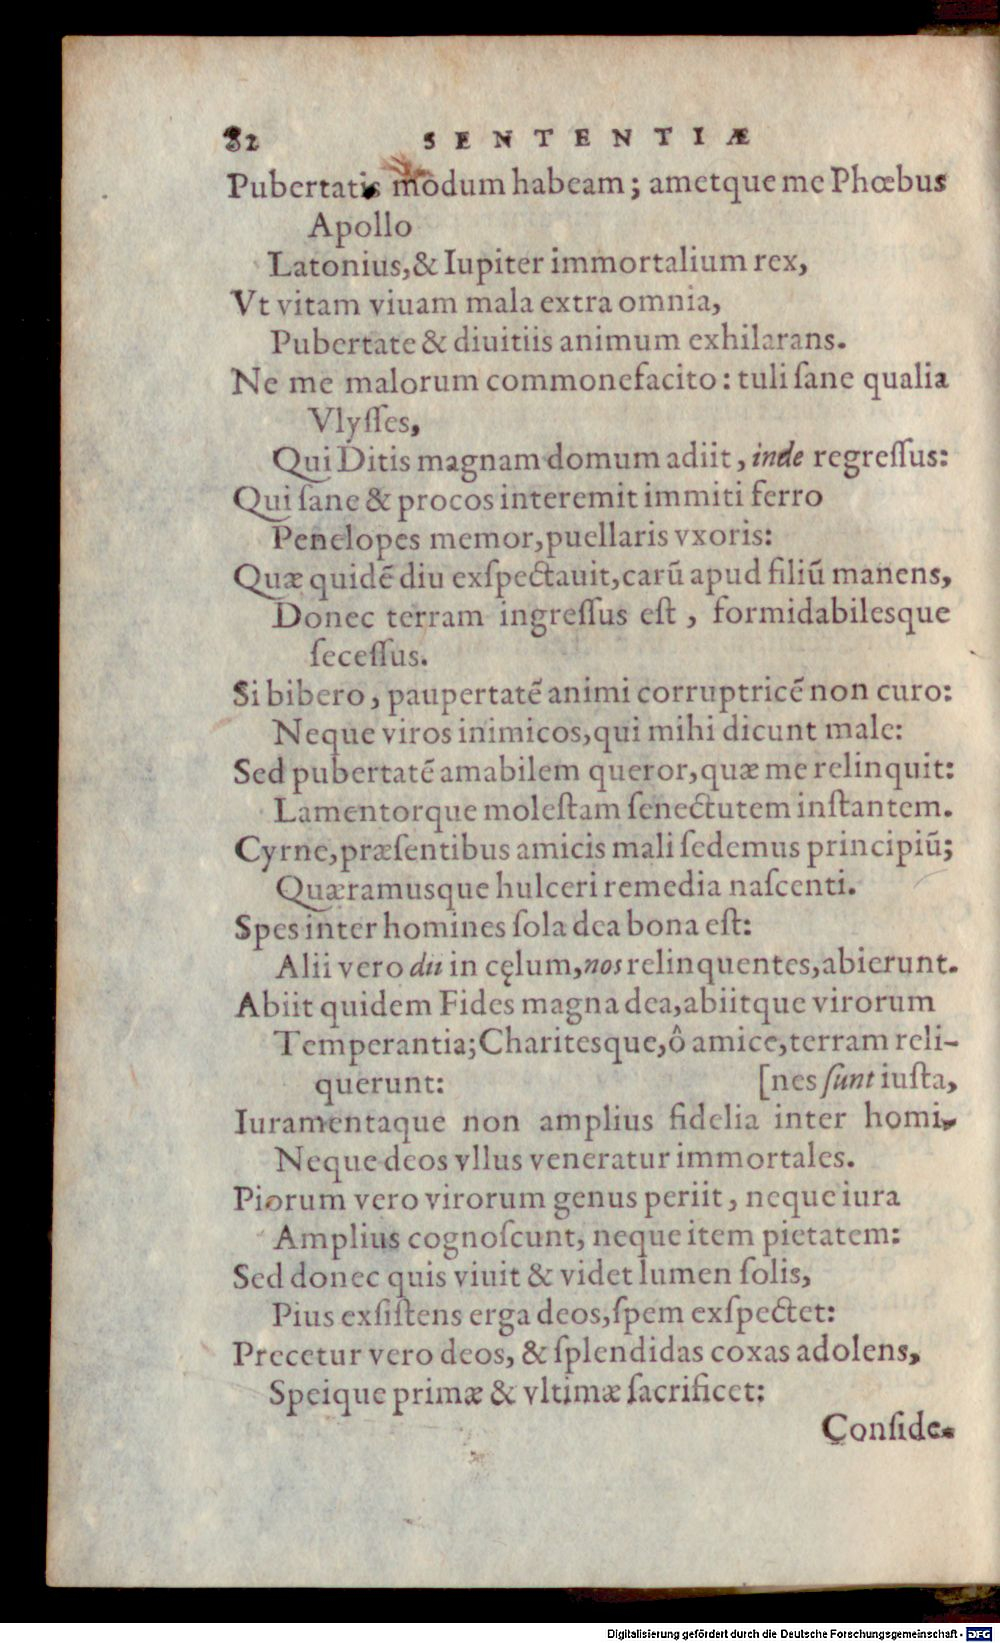 82 SENTENTIÆ
Pubertatis modum habeam; ametque me Phœbus
Apollo
Latonius, & Iupiter immortalium rex,
Vt vitam viuam mala extra omnia,
Pubertate & diuitiis animum exhilarans.
Ne me malorum commonefacito: tuli ſane qualia
Vlyſſes,
Qui Ditis magnam domum adiit, inde regreſſus:
Qui ſane & procos interemit immiti ferro
Penelopes memor, puellaris vxoris:
Quæ quidẽ diu exſpectauit, carũ apud filiũ manens,
Donec terram ingreſſus eſt, formidabilesque
ſeceſſus.
Si bibero, paupertatẽ animi corruptricẽ non curo:
Neque viros inimicos, qui mihi dicunt male:
Sed pubertatẽ amabilem queror, quæ me relinquit:
Lamentorque moleſtam ſenectutem inſtantem.
Cyrne, præſentibus amicis mali ſedemus principiũ;
Quæramusque hulceri remedia naſcenti.
Spes inter homines ſola dea bona eſt:
Alii vero dii in cęlum, nos relinquentes, abierunt.
Abiit quidem Fides magna dea, abiitque virorum
Temperantia; Charitesque, ô amice, terram reli-
querunt: [nes ſunt iuſta,
Iuramentaque non amplius fidelia inter homi-
Neque deos vllus veneratur immortales.
Piorum vero virorum genus periit, neque iura
Amplius cognoſcunt, neque item pietatem:
Sed donec quis viuit & videt lumen ſolis,
Pius exſiſtens erga deos, ſpem exſpectet:
Precetur vero deos, & ſplendidas coxas adolens,
Speique primæ & vltimæ ſacrificet:
Conſide-
Digitalisierung gefördert durch die Deutsche Forschungsgemeinschaft - DFG